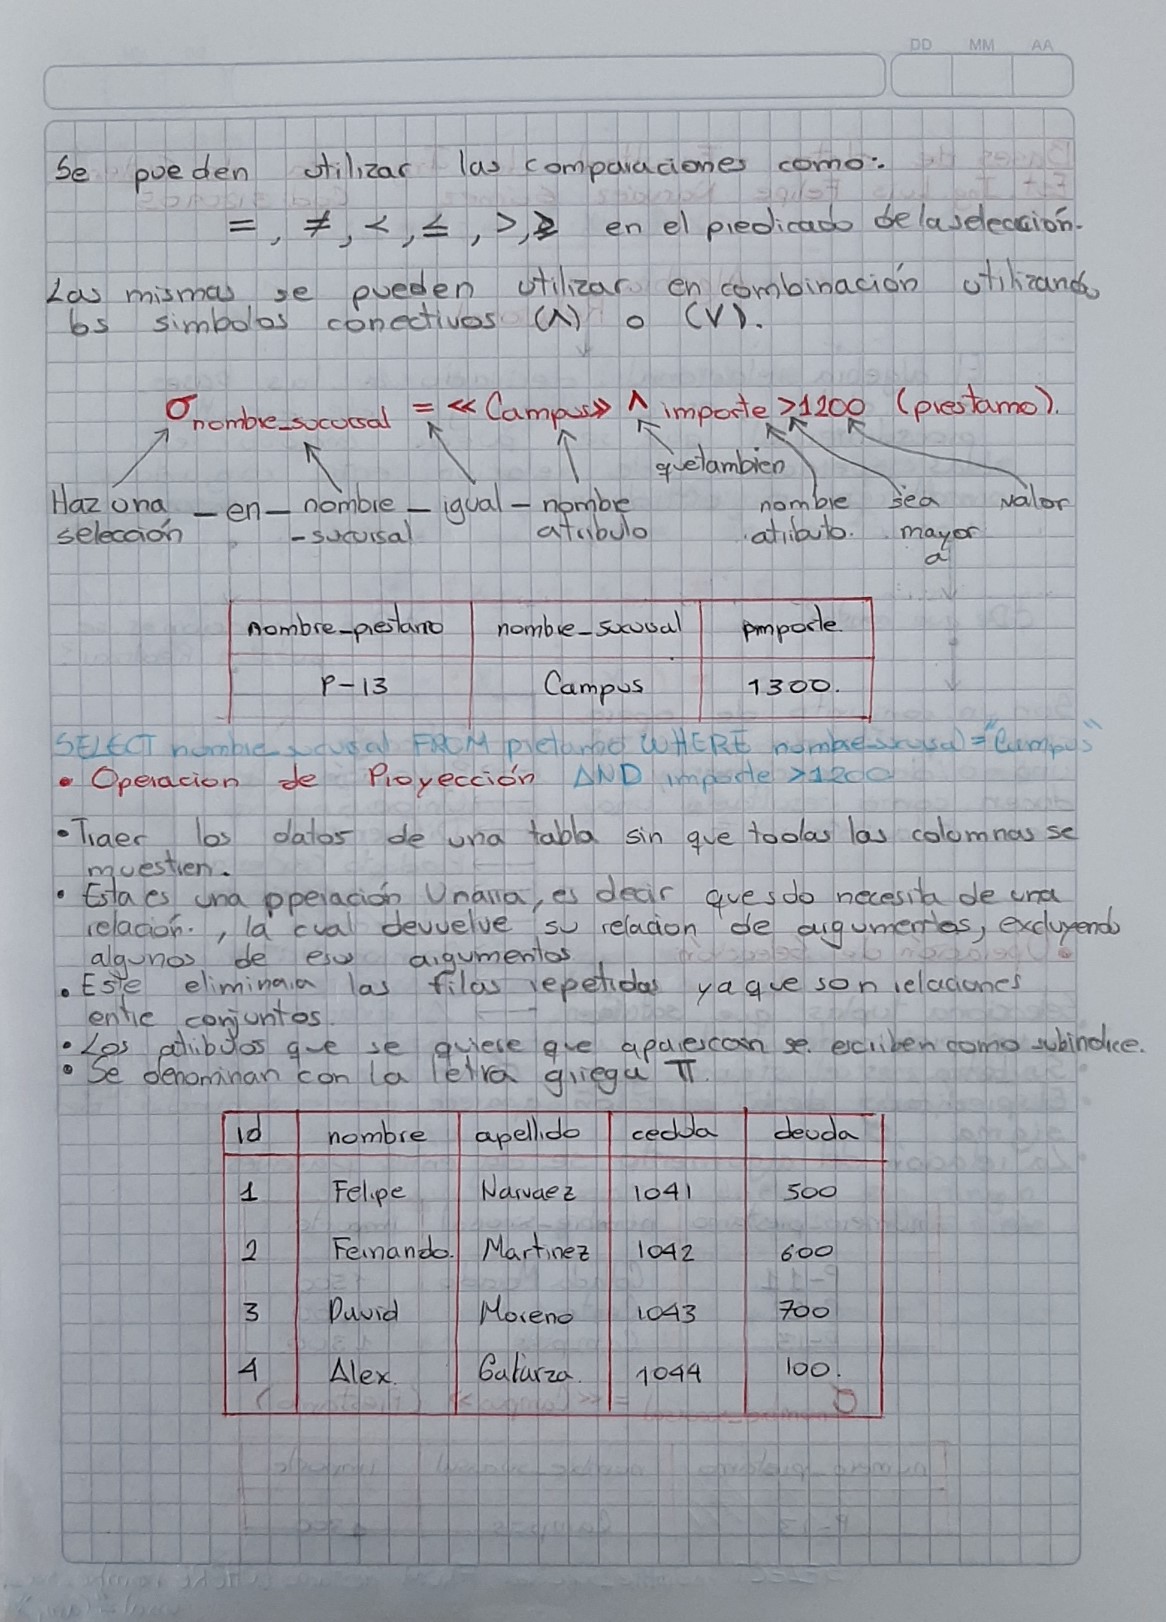 DD MM AA
Se pueden utilizar las comparaciones como:
=, ≠, <, ≤, >, ≥ en el predicado de la selección.
Las mismas se pueden utilizar en combinación utilizando
los simbolos conectivos (Λ) o (V).
σ nombre_sucursal = << Campus>> Λ importe >1200 (prestamo).
quetambien
Haz una _ en _ nombre _ igual _ nombre nombre sea valor
selección -sucursal atributo atributo. mayor
a
nombre_prestamo nombre_sucursal importe
P-13 Campus 1300.
SELECT nombre_sucursal FROM pretamo WHERE nombre_sucursal = "Campus"
• Operacion de Proyección AND importe >1200
• Traer los datos de una tabla sin que todas las columnas se
muestren.
• Esta es una operación Unaria, es decir que solo necesita de una
relación., la cual devuelve su relacion de argumentos, excluyendo
algunos de esos argumentos
• Este eliminara las filas repetidas ya que son relaciones
entre conjuntos.
• Los atributos que se quiere que aparescan se. escriben como subindice.
• Se denominan con la letra griega π.
id nombre apellido cedula deuda
1 Felipe Narvaez 1041 500
2 Fernando. Martinez 1042 600
3 David Moreno 1043 700
4 Alex. 1044 100.